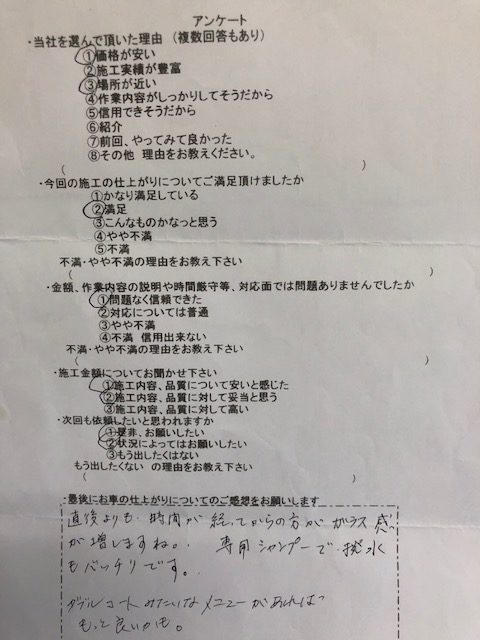 アンケート
・当社を選んで頂いた理由 (複数回答もあり)
①価格が安い
②施工実績が豊富
③場所が近い
④作業内容がしっかりしてそうだから
⑤信用できそうだから
⑥紹介
⑦前回、やってみて良かった
⑧その他 理由をお教えください。
( )
・今回の施工の仕上がりについてご満足頂けましたか
①かなり満足している
②満足
③こんなものかなっと思う
④やや不満
⑤不満
不満・やや不満の理由をお教え下さい
( )
・金額、作業内容の説明や時間厳守等、対応面では問題ありませんでしたか
①問題なく信頼できた
②対応については普通
③やや不満
④不満 信用出来ない
不満・やや不満の理由をお教え下さい
( )
・施工金額についてお聞かせ下さい
①施工内容、品質について安いと感じた
②施工内容、品質に対して妥当と思う
③施工内容、品質に対して高い
・次回も依頼したいと思われますか
①是非、お願いしたい
②状況によってはお願いしたい
③もう出したくはない
もう出したくない の理由をお教え下さい
( )
・最後にお車の仕上がりについてのご感想をお願いします
直後よりも、時間が経ってからの方がガラス感
が増しますね。 専用シャンプーで撥水
もバッチリです。
ダブルコートみたいなメニューがあれば
もっと良いかも。